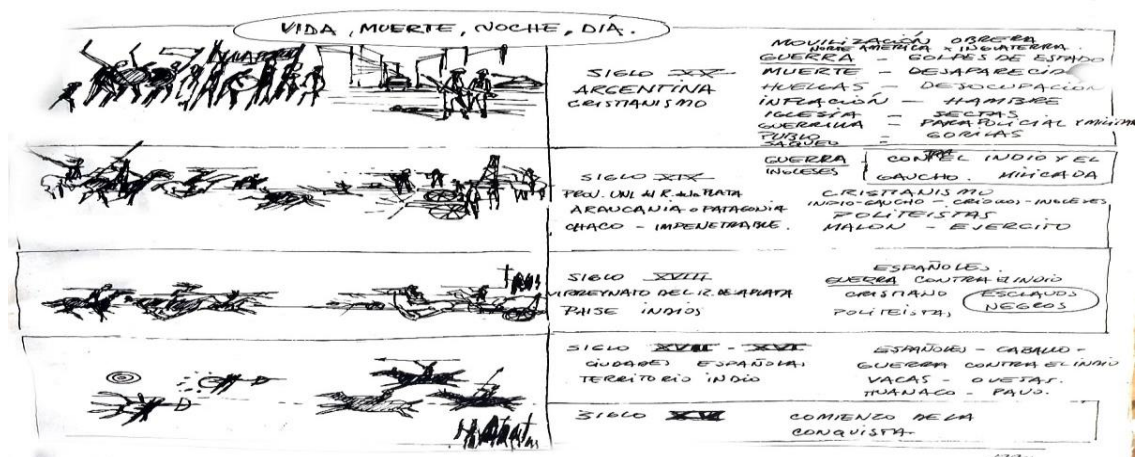 VIDA, MUERTE, NOCHE, DIÁ.
SIGLO XX
ARGENTINA
CRISTIANISMO
MOVILIZACIÓN OBRERA
NORTE AMERICA × INGLATERRA.
GUERRA - GOLPES DE ESTADO
MUERTE - DESAPARECID
HUELGAS - DESOCUPACIÓN
INFLACIÓN - HAMBRE
IGLESIA - SECTAS
GUERRILLA - PARAPOLICIAL Y MILITAR
PUEBLO - GORILAS
SAQUEO
SIGLO XIX
PROV. UNI. del R. de la PLATA
ARAUCANIA o PATAGONIA
CHACO - IMPENETRABLE.
GUERRA
INGLESES
CONTRA EL INDIO Y EL
GAUCHO. MILICADA
CRISTIANISMO
INDIO-GAUCHO - CRIOLLOS-INGLESES
POLITEISTAS
MALON - EJERCITO
SIGLO XVIII
VIRREYNATO DEL R. DE LA PLATA
PAISE INDIOS
ESPAÑOLES.
GUERRA CONTRA EL INDIO
CRISTIANO
POLITEISTA,
ESCLAVOS
NEGROS
SIGLO XVII - XVI
CIUDADES ESPAÑOLA,
TERRITORIO INDIO
ESPAÑOLES - CABALLO -
GUERRA CONTRA EL INDIO
VACAS - OVEJAS.
HUANACO - PAVO.
SIGLO XV
COMIENZO DE LA
CONQUISTA.